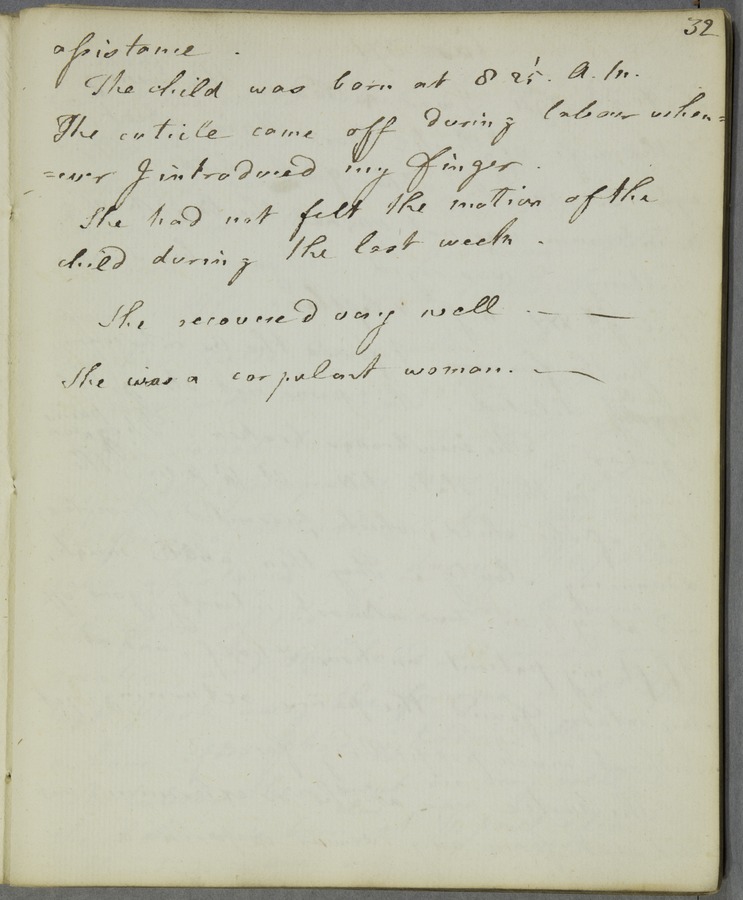 32
assistance .
The child was born at 8 25'. A.M.
The cuticle came off during labour when=
=ever I introduced my finger .
She had not felt the motion of the
child during the last week .
She recovered very well . — —
She was a corpulent woman. —